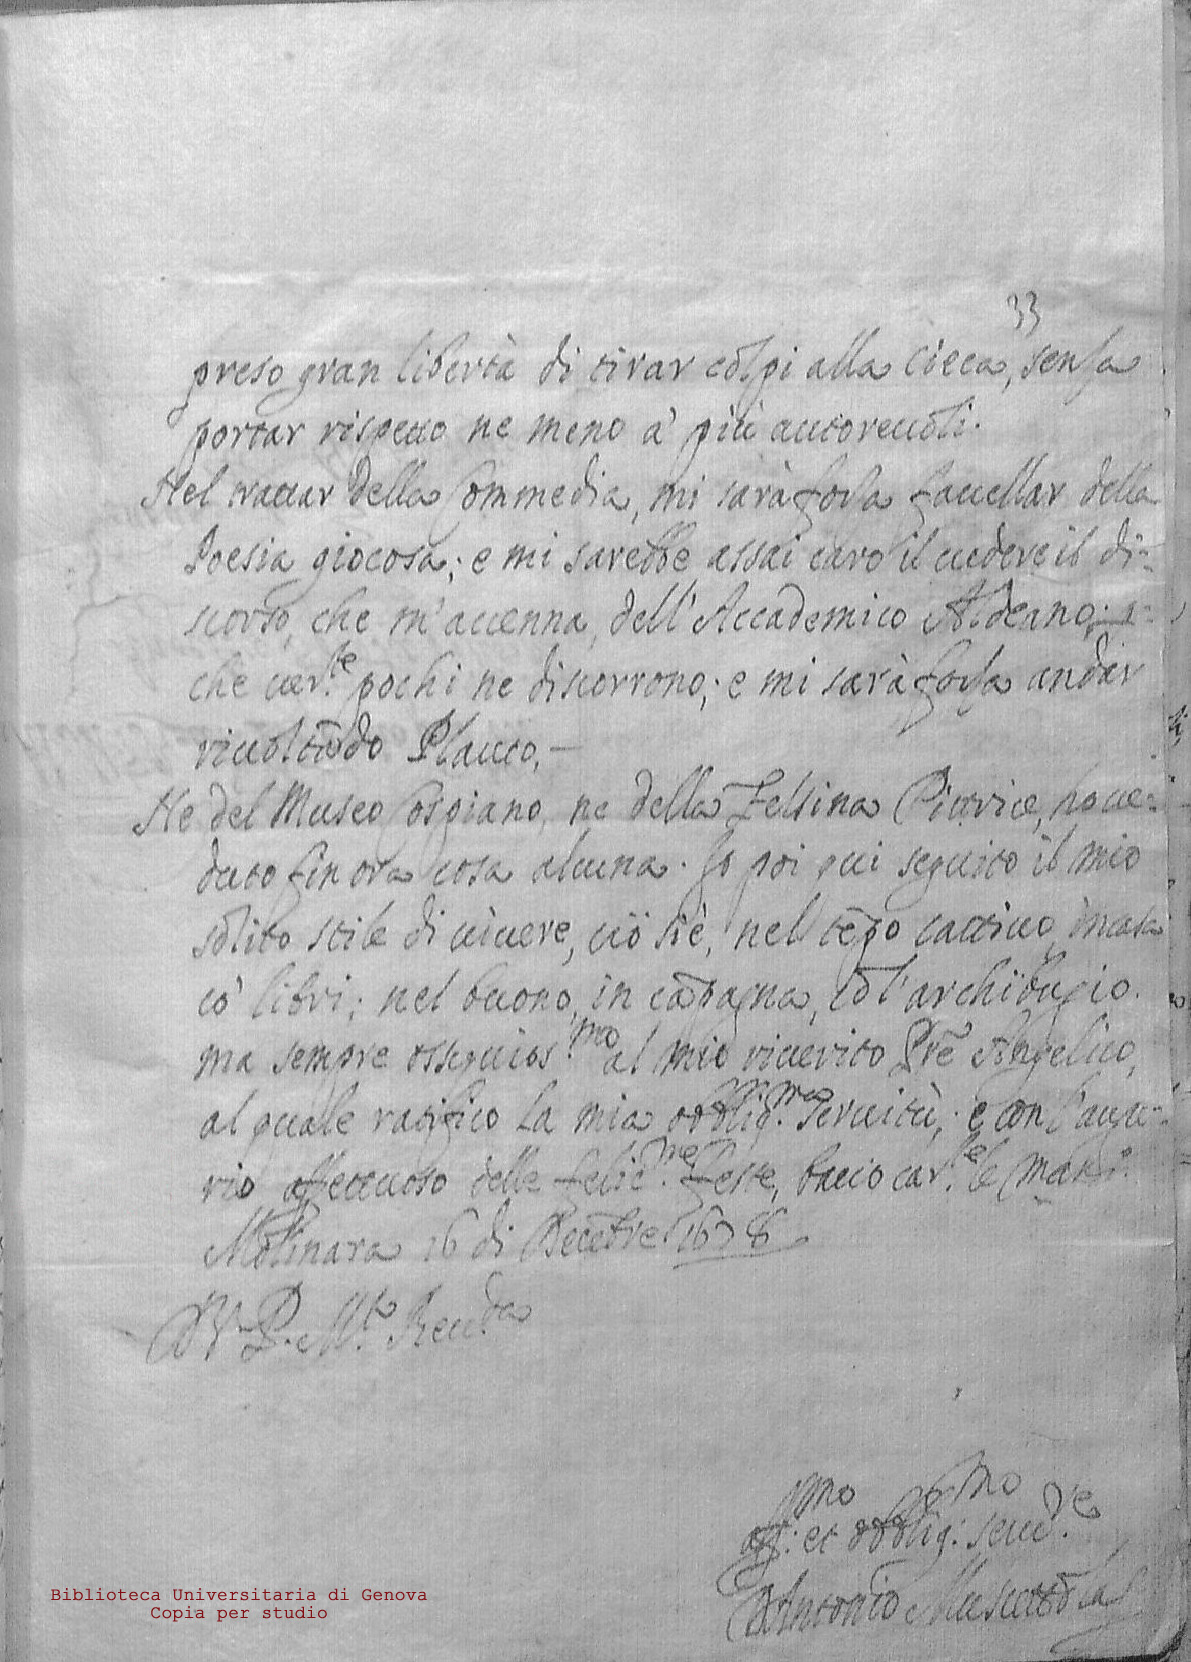 33
preso gran libertà di tirar colpi alla cieca, senza
portar rispetto ne meno a' più autorevoli.
Nel trattar della Commedia, mi sarà forza favellar della
Poesia giocosa; e mi sarebbe assai caro il vedere il di=
scorso, che m'accenna, dell'Accademico Aldeano;
che cer.te pochi ne discorrono; e mi sarà forza andar
rivoltādo Plauto,—
Ne del Museo Cospiano, ne della Felsina Pittrice, ho ve=
duto fin ora cosa alcuna. Io poi qui seguito il mio
solito stile di vivere, ciò si è, nel tēpo cattivo, in casa
co' libri; nel buono, in cāpagna, cō l'archibugio.
ma sempre ossequios.mo al mio riverito Prē Angelico,
al quale ratifico la mia obblig.ma servitù; e con l'augu=
rio affettuoso delle felic.me feste, bacio car.te le mani.
Molinara 16 di Decēbre 1678
D V. P. M.to Rev.da
aff.mo et obblig.mo serv.re
Antonio Muscettola
Biblioteca Universitaria di Genova
Copia per studio